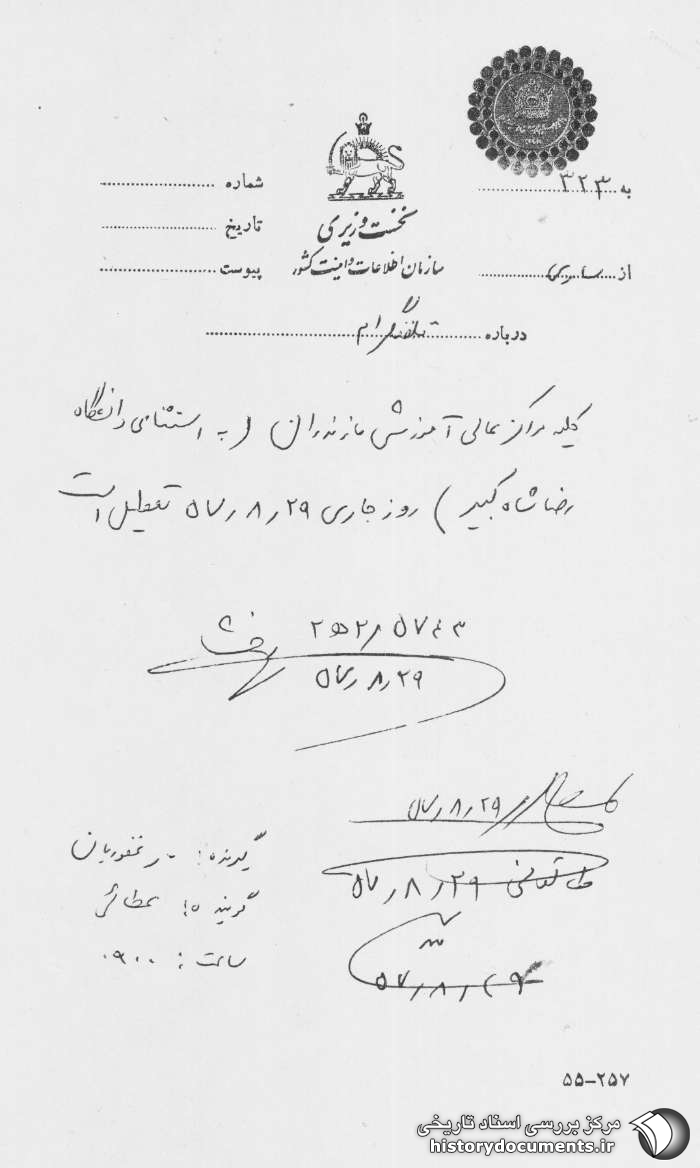 به ۳۲۳
شماره
نخست وزیری
تاریخ
سازمان اطلاعات و امنیت کشور
از ساری
پیوست
درباره تلفنگرام
کلیه مراکز عالی آموزشی مازندران (به استثنای دانشگاه
رضا شاه کبیر) روز جاری ۵۷٫۸٫۲۹ تعطیل است
۵۷٫۸٫۲۹
۵۷٫۸٫۲۹
۵۷٫۸٫۲۹
۵۷٫۸٫۲۹
گیرنده: غفوریان
گوینده: عطائی
ساعت: ۰۹۰۰
۵۵-۲۵۷
مرکز بررسی اسناد تاریخی
historydocuments.ir